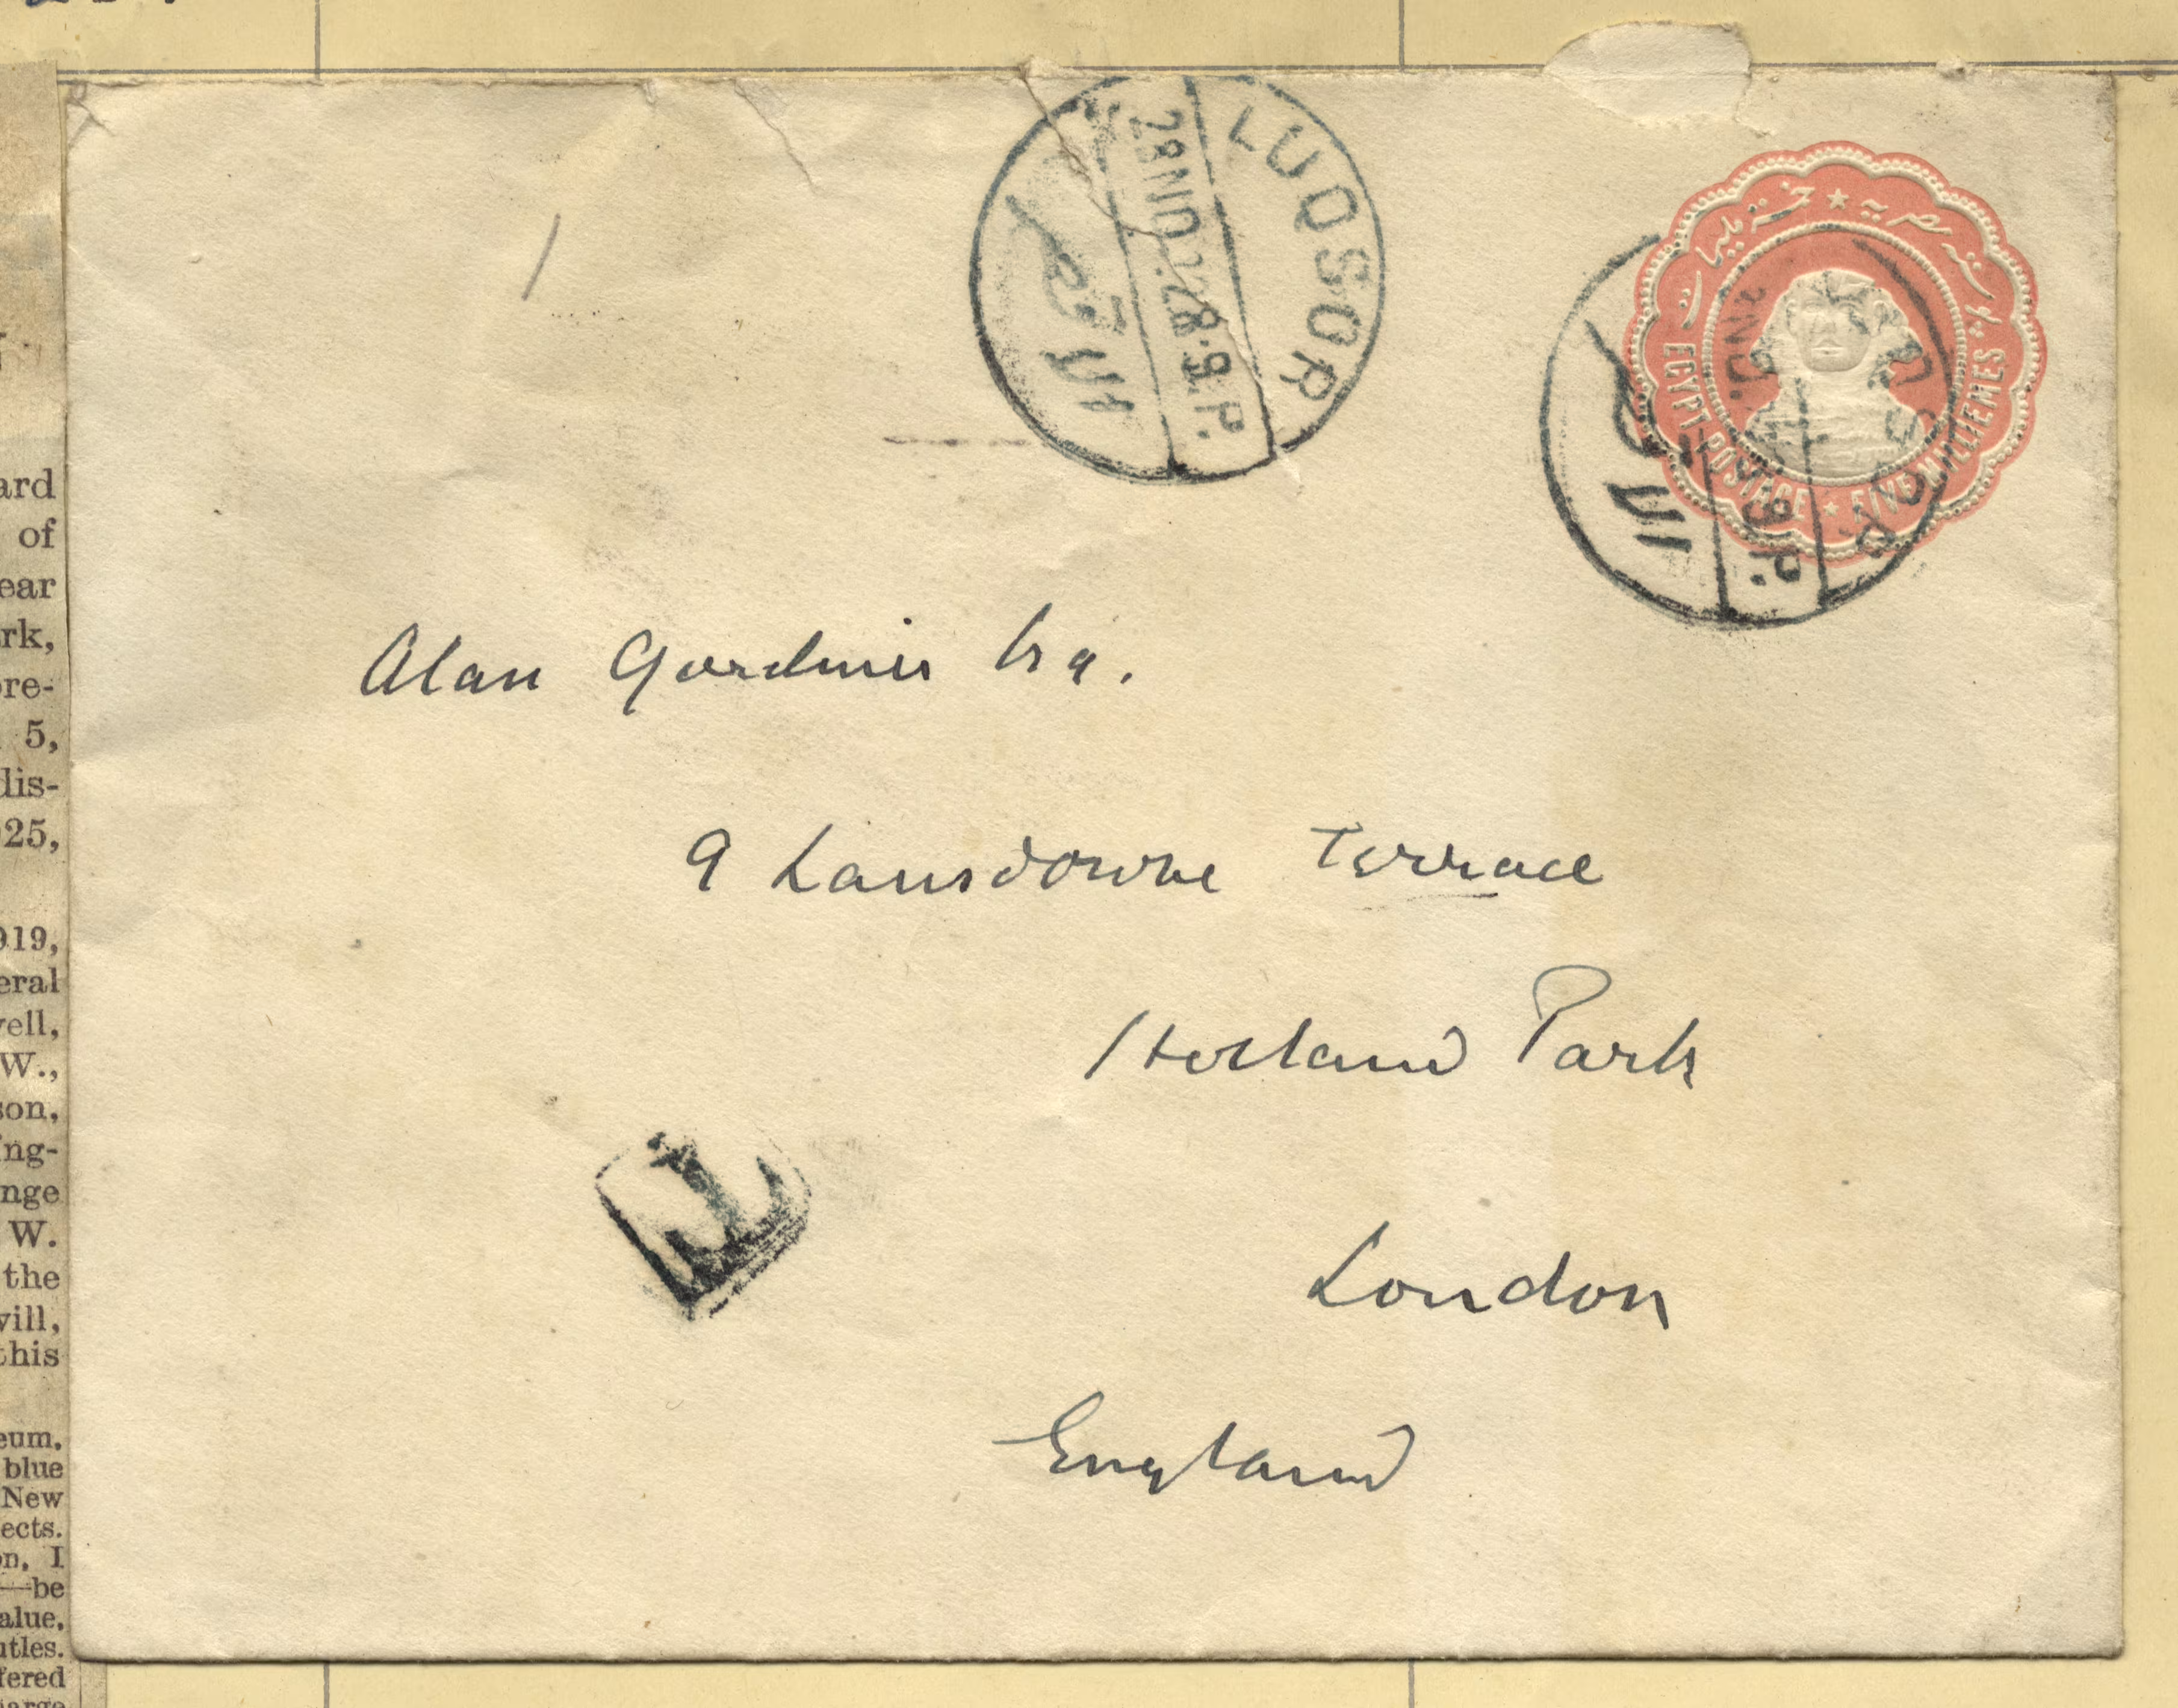 LUQSOR
28 NO.22 8-9 P.
الاقصر
بوسته مصريه ★ خمسة مليمات
EGYPT-POSTAGE ★ FIVE MILLIEMES
الاقصر
NO.
P.
Alan Gardiner Esq.
9 Lansdowne Terrace
Holland Park
T
London
England
ard
of
ear
rk,
ore-
5,
dis-
25,
919,
eral
well,
W.,
son,
ing-
nge
W.
the
will,
this
eum,
blue
New
ects.
on, I
—be
alue,
utles.
fered